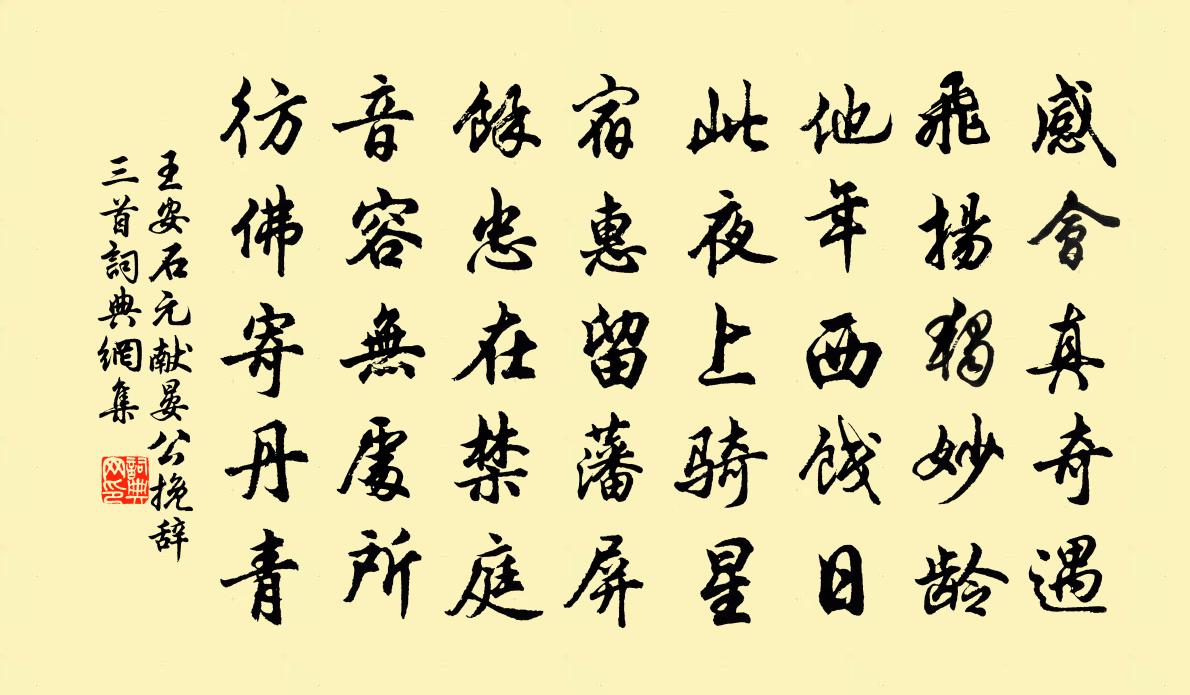 感會真奇遇
飛揚獨妙龄
他年西餞日
此夜上騎星
宿惠留藩屏
餘忠在禁庭
音容無處所
彷佛寄丹青
王安石元献晏公挽辞
三首詞典網集
詞典
网印